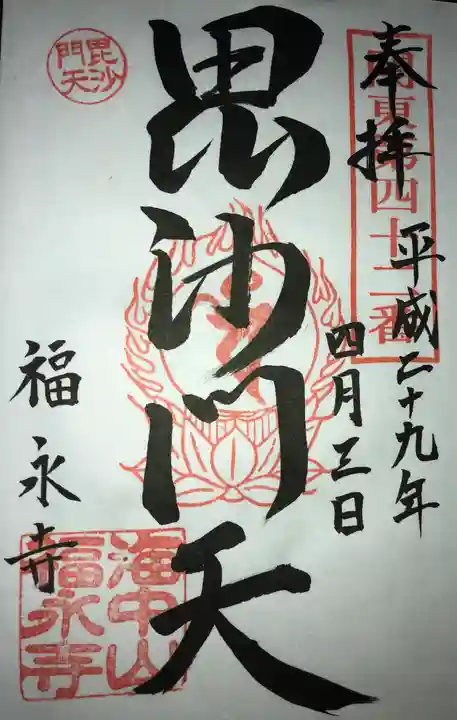 奉拝
関東第四十二番
平成二十九年
四月三日
毘沙門天
毘沙門天
福永寺
海中山
福永寺